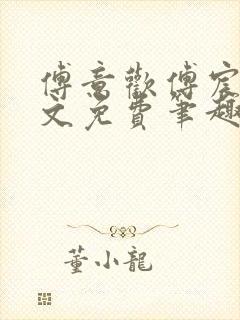 傅意歡傅宸
文免費筆趣
董小龍